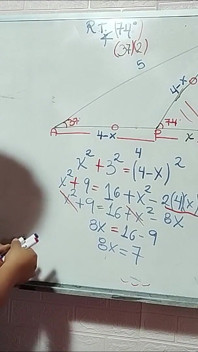 R.T. (74°)
(37)(2)
5
37
4-x
4-x
74°
x
4
x² + 3² = (4-x)²
x² + 9 = 16 + x² - 2(4)(x)
x² + 9 = 16 + x² 8x
8x = 16 - 9
8x = 7